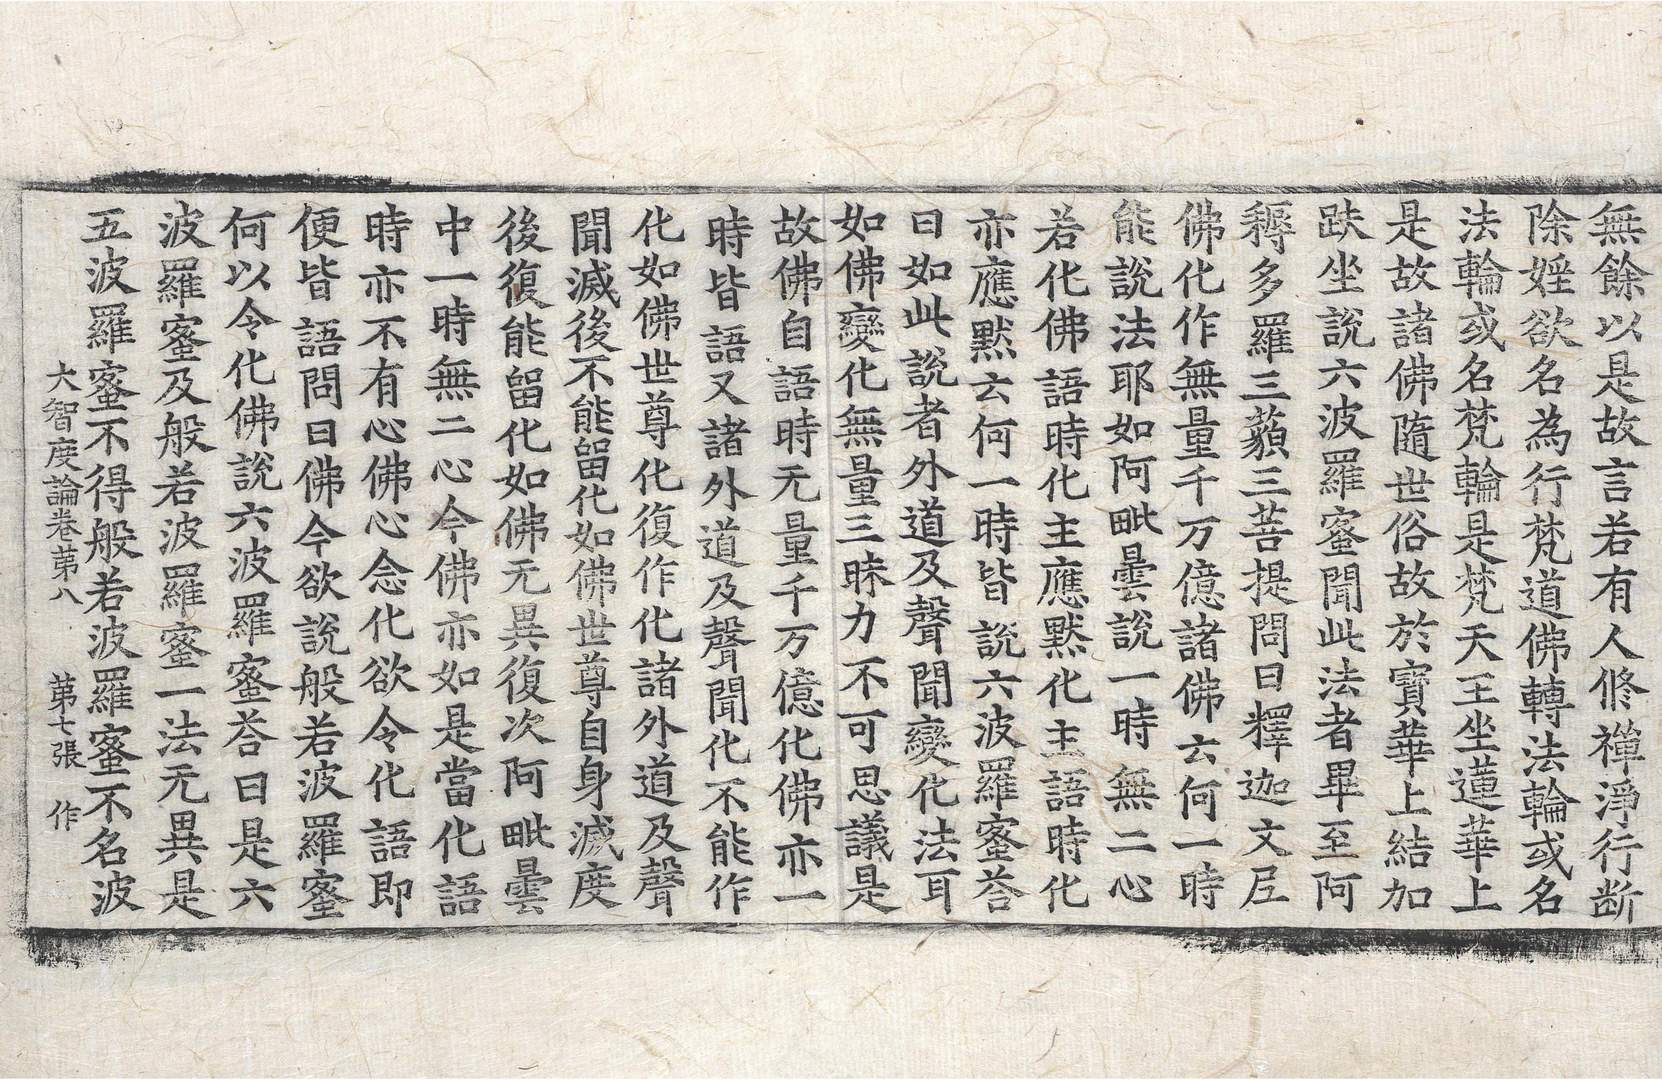 無餘以是故言若有人修禪淨行断
除婬欲名為行梵道佛轉法輪或名
法輪或名梵輪是梵天王坐蓮華上
是故諸佛隨世俗故於寶華上結加
趺坐說六波羅蜜聞此法者畢至阿
耨多羅三藐三菩提問曰釋迦文尼
佛化作無量千万億諸佛云何一時
能說法耶如阿毗曇說一時無二心
若化佛語時化主應黙化主語時化
亦應黙云何一時皆說六波羅蜜荅
曰如此說者外道及聲聞變化法耳
如佛變化無量三昧力不可思議是
故佛自語時无量千万億化佛亦一
時皆語又諸外道及聲聞化不能作
化如佛世尊化復作化諸外道及聲
聞滅後不能留化如佛世尊自身滅度
後復能留化如佛无異復次阿毗曇
中一時無二心今佛亦如是當化語
時亦不有心佛心念化欲令化語即
便皆語問曰佛今欲說般若波羅蜜
何以令化佛說六波羅蜜荅曰是六
波羅蜜及般若波羅蜜一法无異是
五波羅蜜不得般若波羅蜜不名波
大智度論卷苐八 苐七張 作